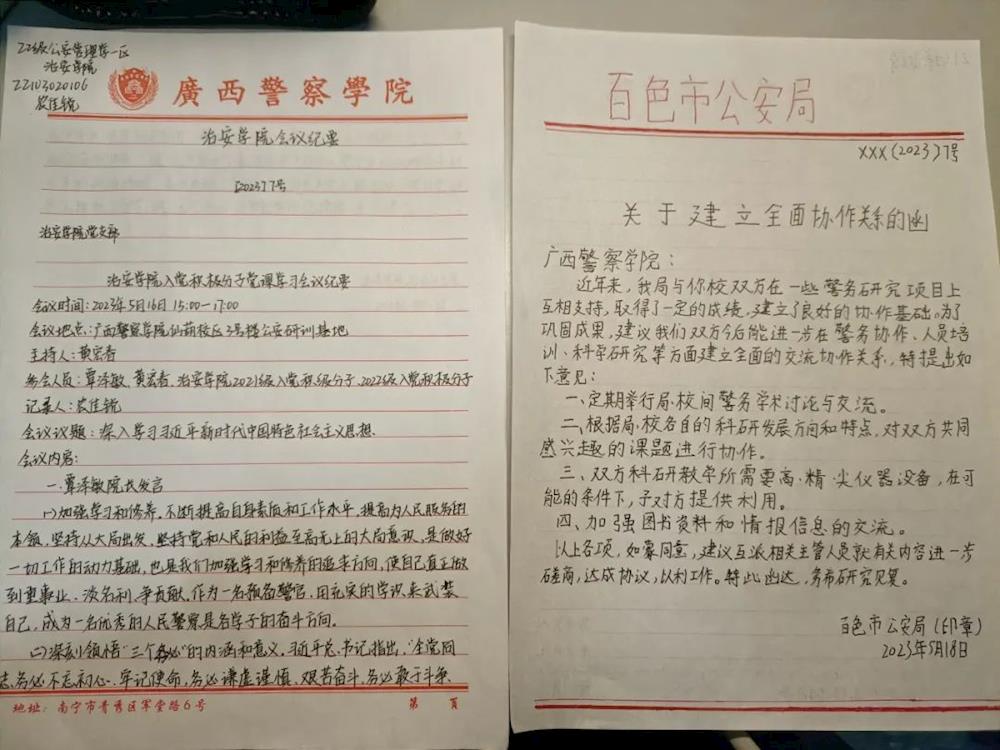 22级公安管理学一区
治安学院
22103020106
农佳锐
廣西警察學院
治安学院会议纪要
[2023]7号
治安学院党支部
治安学院入党积极分子党课学习会议纪要
会议时间:2023年5月16日 15:00—17:00
会议地点:广西警察学院仙葫校区3号楼公安研训基地
主持人:黄宏春
参会人员:覃泽敏、黄宏春、治安学院2021级入党积极分子、2022级入党积极分子
记录人:农佳锐
会议议题:深入学习习近平新时代中国特色社会主义思想.
会议内容:
一.覃泽敏院长发言
(一)加强学习和修养.不断提高自身素质和工作水平,提高为人民服务的
本领,坚持从大局出发、坚持党和人民的利益至高无上的大局意识,是做好
一切工作的动力基础,也是我们加强学习和修养的追求方向,使自己真正做
到重事业、淡名利、争贡献.作为一名预备警官.用充实的学识来武装
自己,成为一名优秀的人民警察是各学子的奋斗方向。
(二)深刻领悟"三个务必"的内涵和意义.习近平总书记指出,"全党同
志务必不忘初心、牢记使命,务必谦虚谨慎、艰苦奋斗,务必敢于斗争、
地址:南宁市青秀区军堂路6号
第 页
百色市公安局
XXX(2023)7号
关于建立全面协作关系的函
广西警察学院:
近年来,我局与你校双方在一些警务研究项目上
互相支持,取得了一定的成绩,建立了良好的协作基础。为了
巩固成果,建议我们双方今后能进一步在警务协作、人员培
训、科学研究等方面建立全面的交流协作关系,特提出如
下意见:
一、定期举行局、校间警务学术讨论与交流。
二、根据局、校各自的科研发展方向和特点,对双方共同
感兴趣的课题进行协作。
三、双方科研教学所需要高、精、尖仪器设备,在可
能的条件下,予对方提供利用。
四、加强图书资料和情报信息的交流。
以上各项,如蒙同意,建议互派相关主管人员就有关内容进一步
磋商,达成协议,以利工作。特此函达,务希研究见复。
百色市公安局(印章)
2023年5月18日